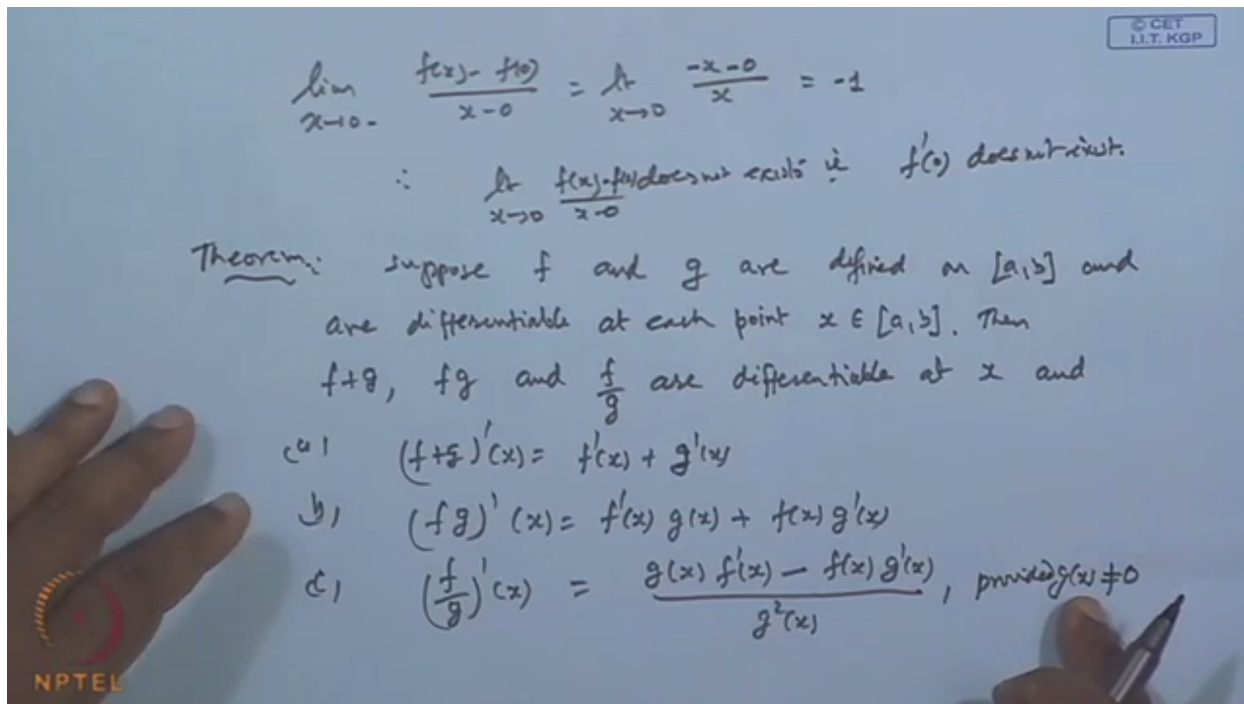 © CET
I.I.T. KGP
lim x→0- (f(x) - f(0))/(x-0) = lt x→0 (-x-0)/x = -1
∴ lt x→0 (f(x)-f(0))/(x-0) does not exists ie f'(0) does not exist.
Theorem: Suppose f and g are defined on [a,b] and
are differentiable at each point x ∈ [a,b]. Then
f+g, fg and f/g are differentiable at x and
(a) (f+g)'(x) = f'(x) + g'(x)
b) (fg)'(x) = f'(x) g(x) + f(x) g'(x)
c) (f/g)'(x) = (g(x) f'(x) - f(x) g'(x))/g²(x), provided g(x) ≠ 0
NPTEL